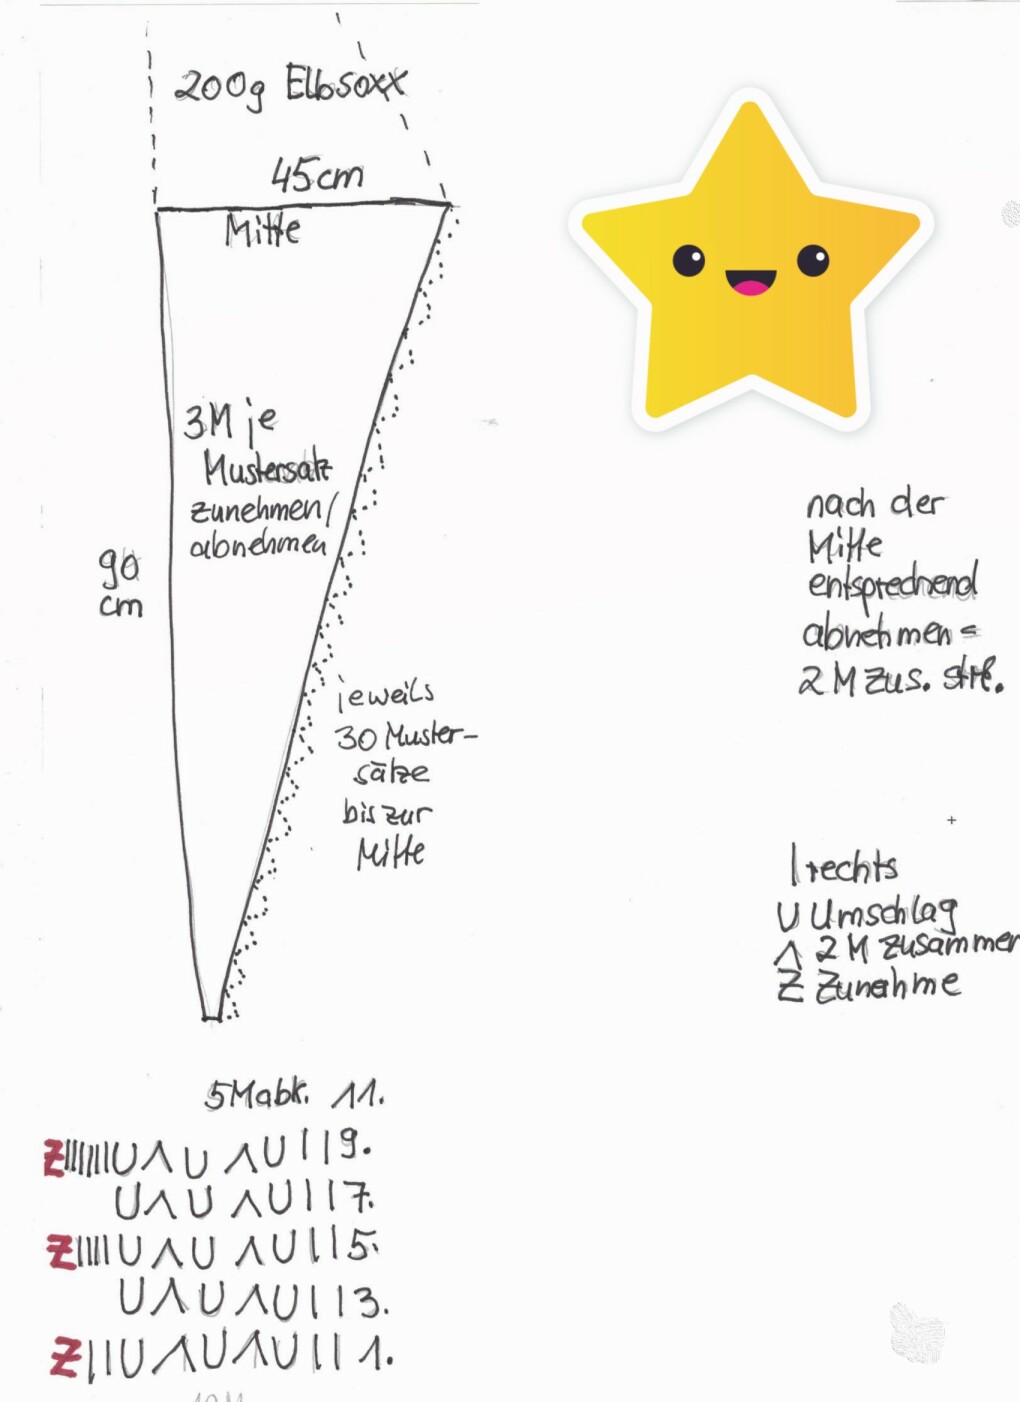 200g Elbsoxx
45cm
Mitte
3M je
Mustersatz
zunehmen/
abnehmen
90
cm
jeweils
30 Muster-
sätze
bis zur
Mitte
nach der
Mitte
entsprechend
abnehmen =
2 M zus. str.
| rechts
U Umschlag
Λ 2 M zusammen
Z Zunahme
5 M abk. 11.
Z||||||UΛU ΛU||9.
UΛU ΛU||7.
Z||||UΛU ΛU||5.
UΛU ΛU||3.
Z||UΛUΛU||1.